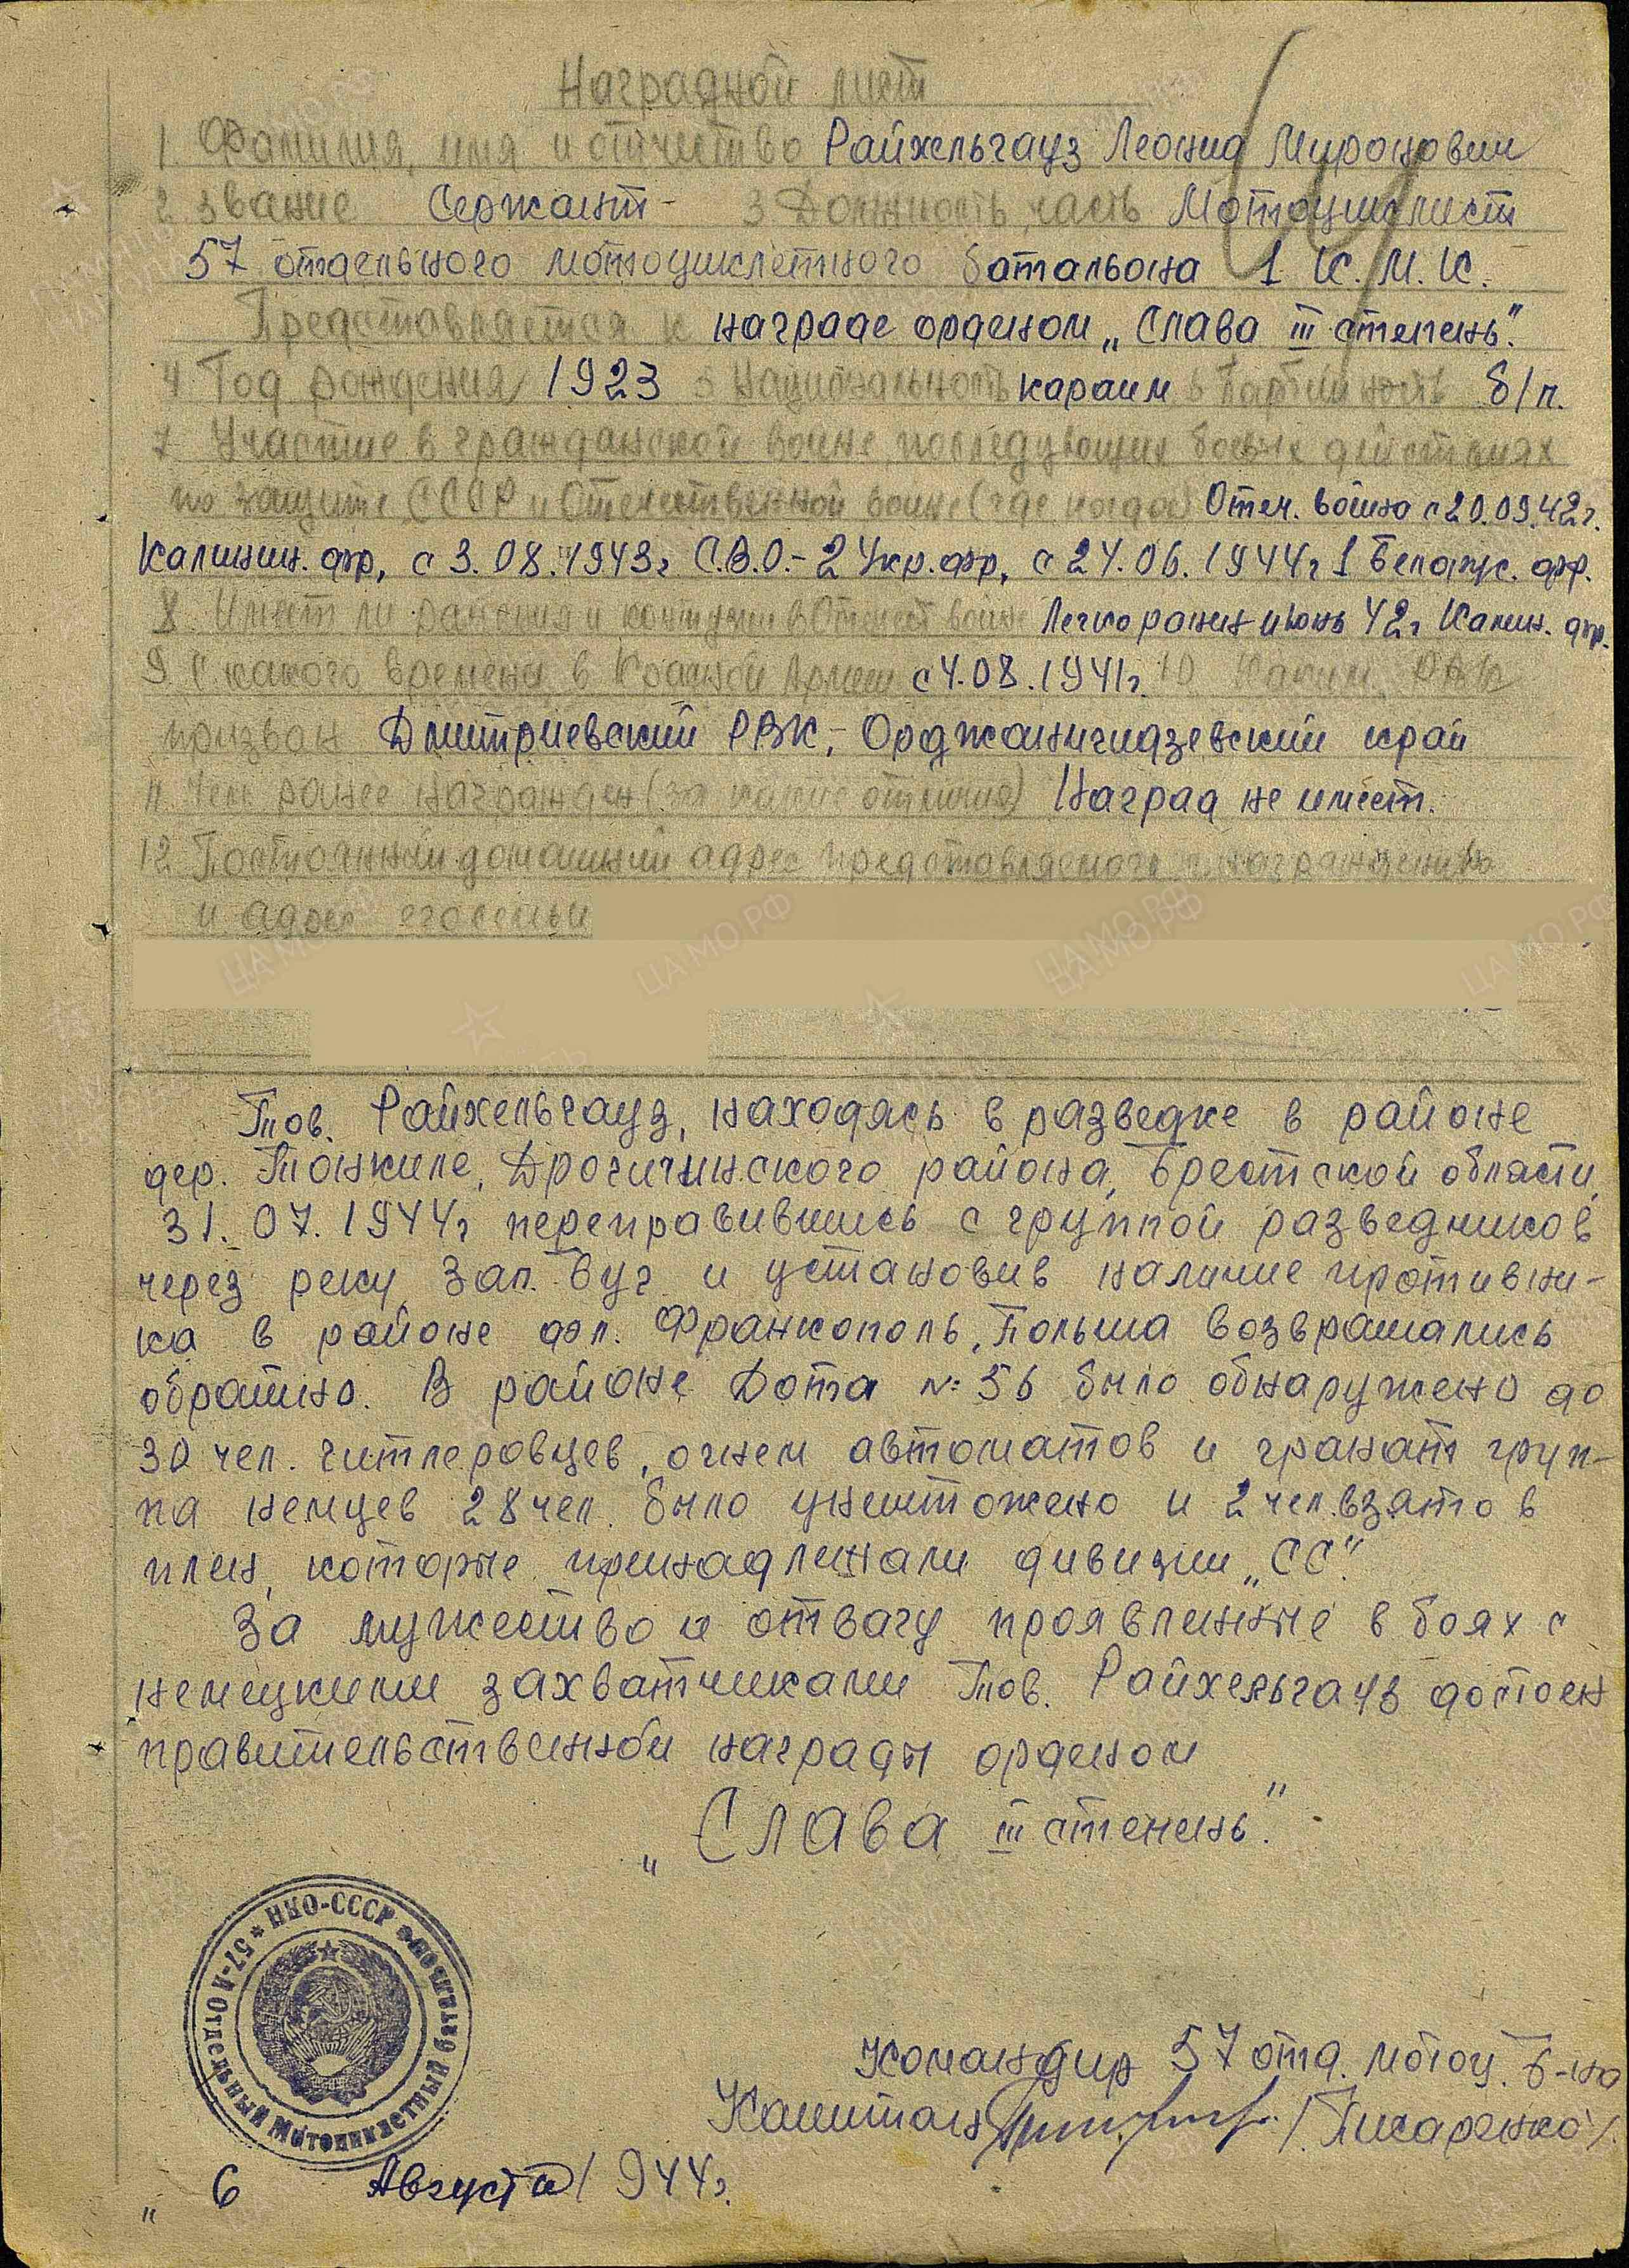 Наградной лист
1. Фамилия, имя и отчество Райхельгауз Леонид Миронович
2. Звание Сержант - 3 Должность, часть Мотоциклист
57 отдельного мотоциклетного батальона 1 К.М.К.
Представляется к награде орденом „Слава III степень".
4. Год рождения 1923 5 Национальность караим 6 Партийность б/п.
7 Участие в гражданской войне, последующих боевых действиях
по защите СССР и Отечественной войне (где когда) Отеч. война с 20.09.42г.
Калинин. фр, с 3.08.1943г С.В.О.-2 Укр.фр, с 24.06.1944г 1 Белорус. фр.
8 Имеет ли ранения и контузии в Отечест войне Легко ранен июнь 42г Калин. фр.
9. С какого времени в Красной Армии с 4.08.1941г. 10 Каким РВК
призван Дмитриевский РВК, Орджоникидзевский край
11. Чем ранее награжден (за какие отличия) Наград не имеет.
12 Постоянный домашний адрес представляемого к награждению
и адрес его семьи
Тов. Райхельгауз, находясь в разведке в районе
дер. Тонкиле, Дрогичинского района, Брестской области,
31.07.1944г переправившись с группой разведчиков
через реку Зап. Буг и установив наличие противни-
ка в районе фл. Франкополь, Польша возвращались
обратно. В районе Дота №: 56 было обнаружено до
30 чел. гитлеровцев, огнем автоматов и гранат груп-
па немцев 28 чел. было уничтожено и 2 чел. взято в
плен, которые принадлежали дивизии „СС".
За мужество и отвагу проявленные в боях с
немецкими захватчиками Тов. Райхельгауз достоен
правительственной награды орденом
„Слава III степень".
57-й Отдельный Мотоциклетный батальон * НКО-СССР
Командир 57 отд. мотоц. б-на
Капитан /Писаренко/.
„ 6 Августа 1944г.